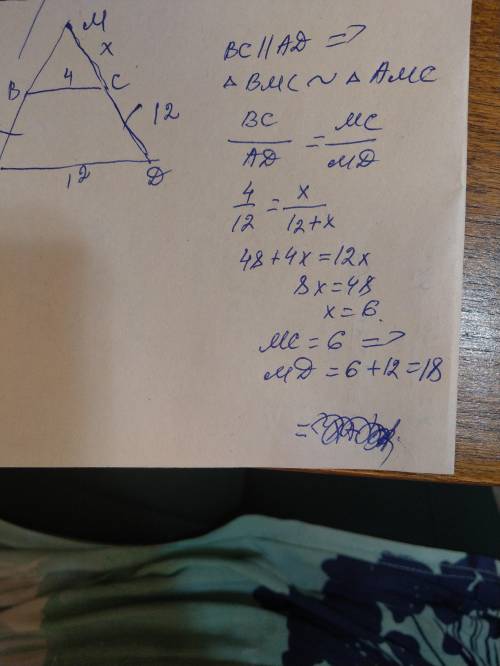 M
x
B 4 C
12
12 D
BC || AD =>
△ BMC ~ △ AMC
BC/AD = MC/MD
4/12 = x/(12+x)
48+4x=12x
8x=48
x=6.
MC = 6 =>
MD = 6+12=18
=